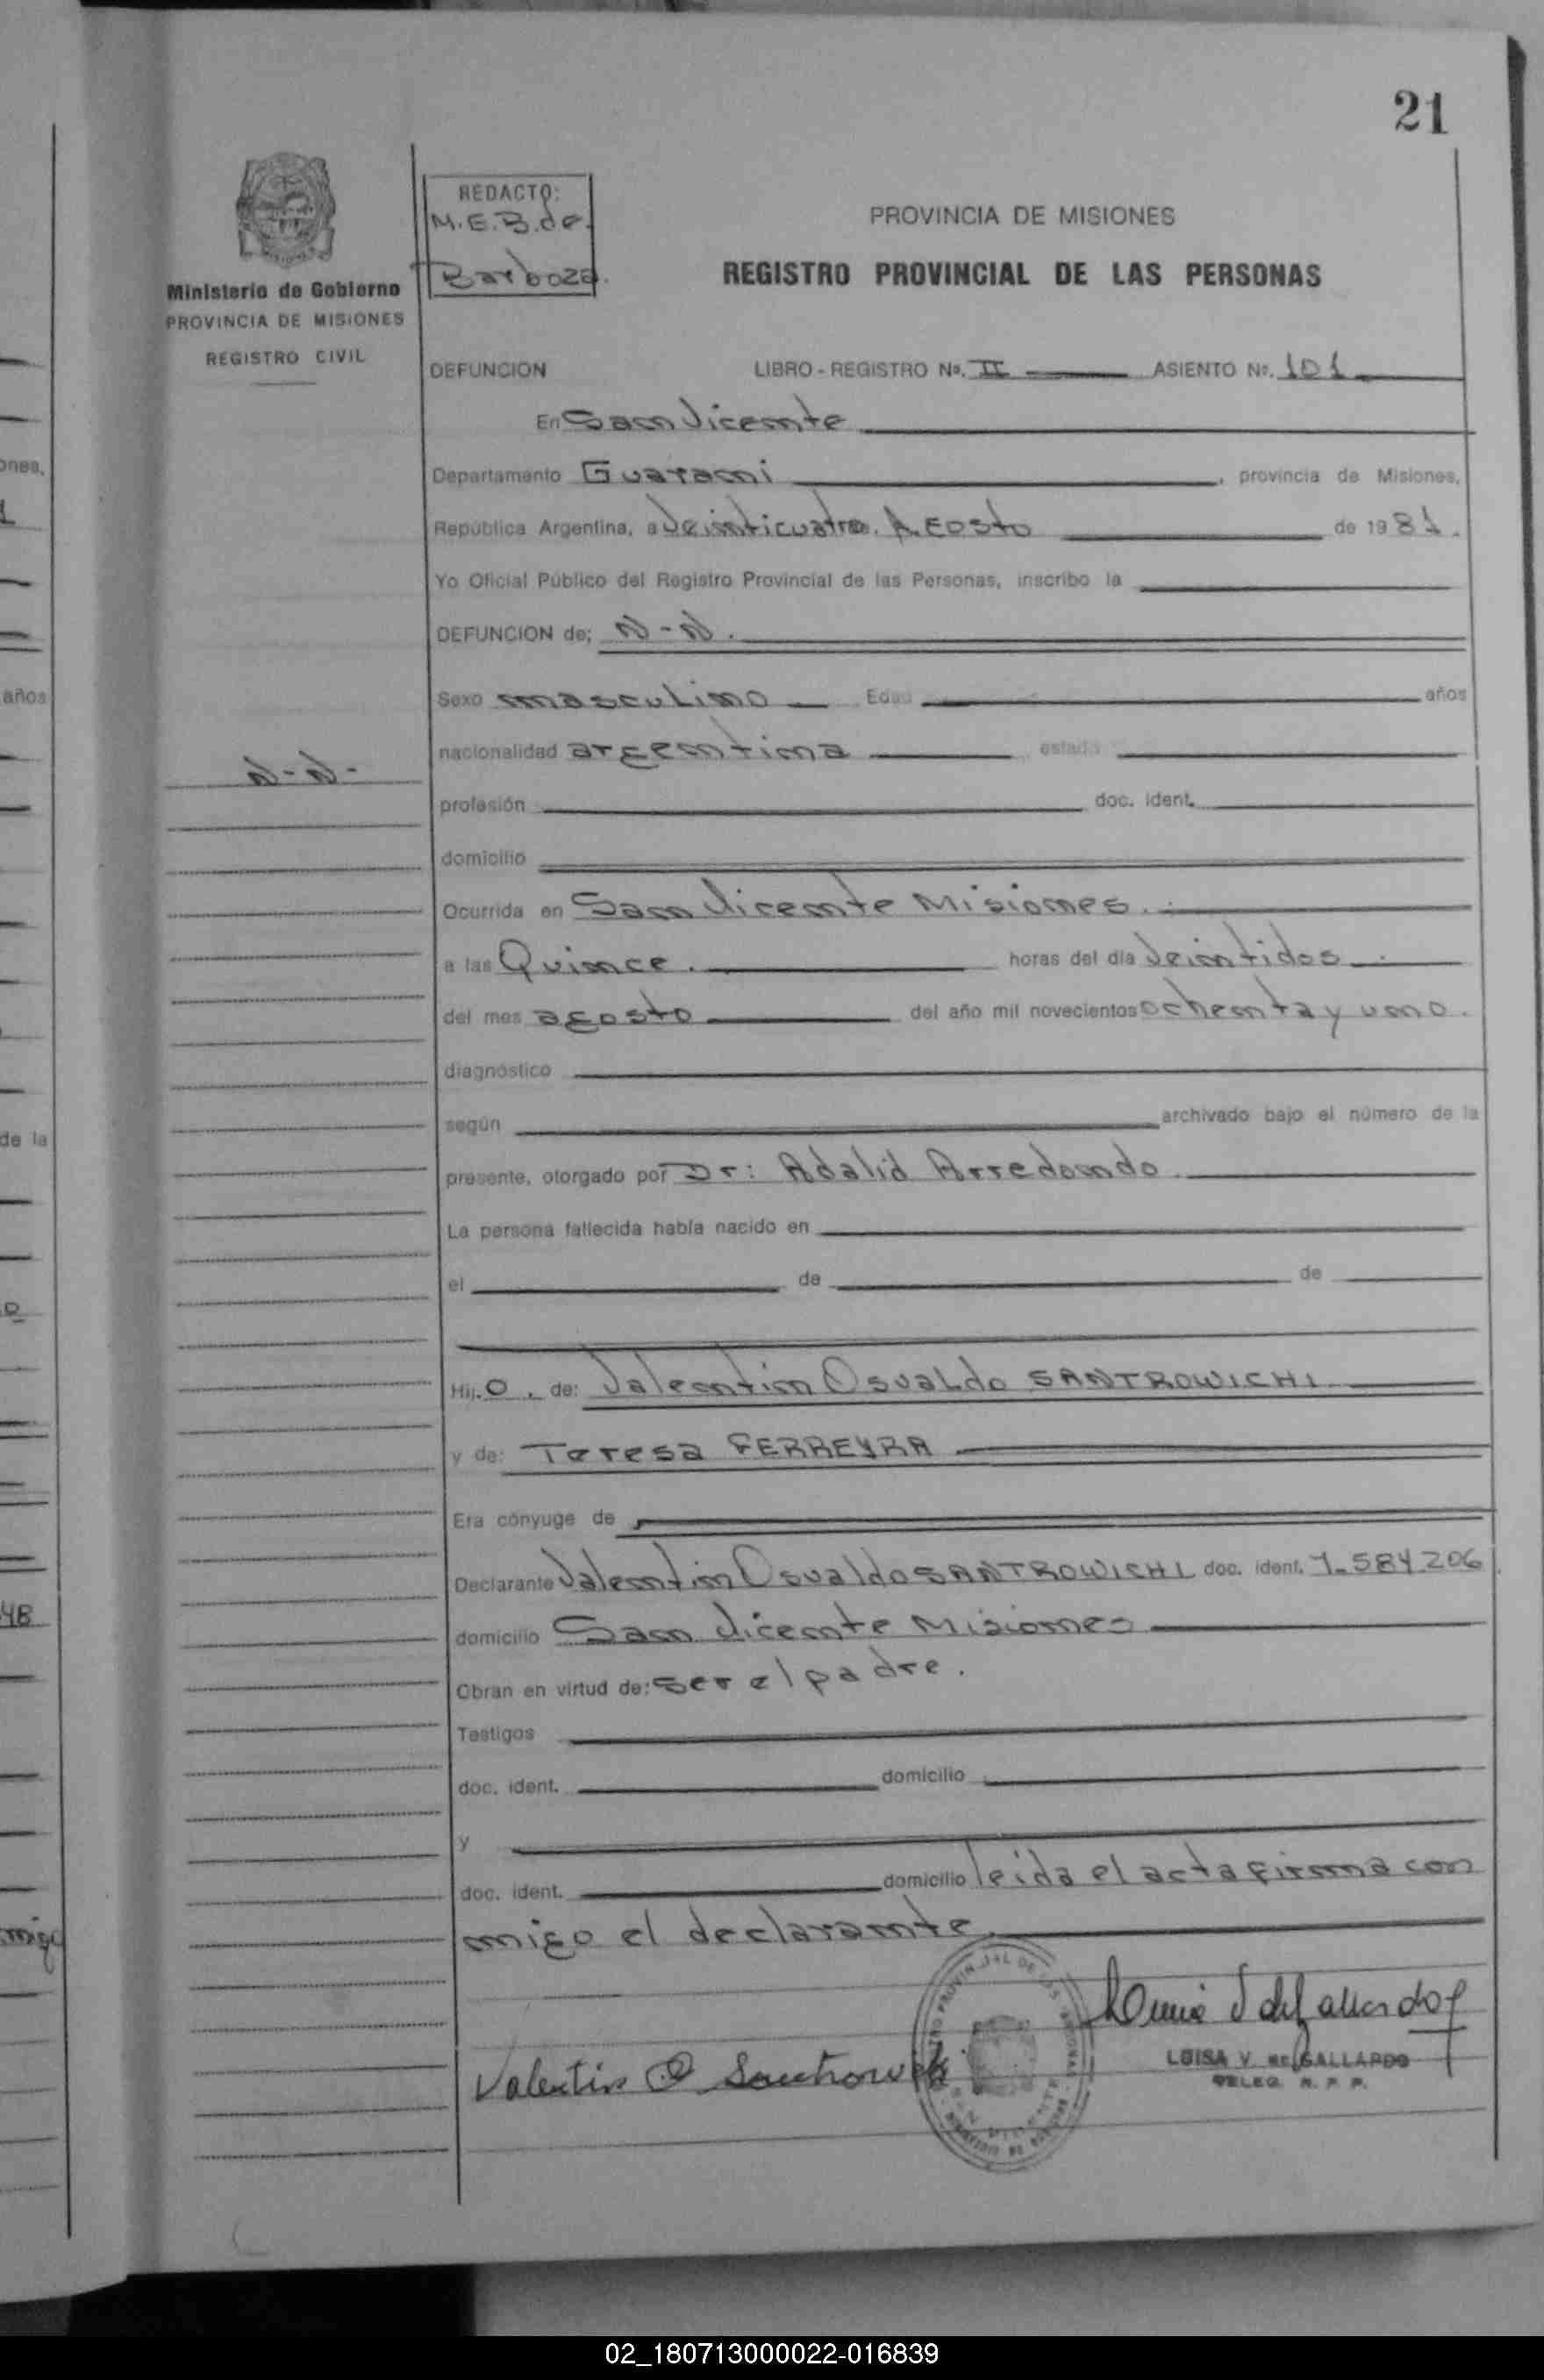 21
REDACTO:
M.E.B. de
Barboza.
Ministerio de Gobierno
PROVINCIA DE MISIONES
REGISTRO CIVIL
PROVINCIA DE MISIONES
REGISTRO PROVINCIAL DE LAS PERSONAS
DEFUNCION LIBRO - REGISTRO Nº. II ASIENTO Nº. 101
En San Vicente
Departamento Guarani, provincia de Misiones,
República Argentina, a Veinticuatro. Agosto de 1981.
Yo Oficial Público del Registro Provincial de las Personas, inscribo la
DEFUNCION de; N-N.
Sexo masculino Edad años
nacionalidad argentina estado
N-N-
profesión doc. ident.
domicilio
Ocurrida en San Vicente Misiones.
a las Quince. horas del día Veintidos
del mes agosto del año mil novecientos ochenta y uno.
diagnóstico
según archivado bajo el número de la
presente, otorgado por Dr: Adalid Arredondo
La persona fallecida había nacido en
el de de
Hij.o. de: Valentin Osvaldo SANTROWICHI
y de: Teresa FERREYRA
Era cónyuge de
Declarante Valentin Osvaldo SANTROWICHI doc. ident. 7.584.206
domicilio San Vicente Misiones
Obran en virtud de: ser el padre.
Testigos
doc. ident. domicilio
y
doc. ident. domicilio leida el acta firma con
migo el declarante
Valentin O
LUISA V. de GALLARDO
DELEG. R. P. P.
ones,
años
de la
48
migo
02_180713000022-016839